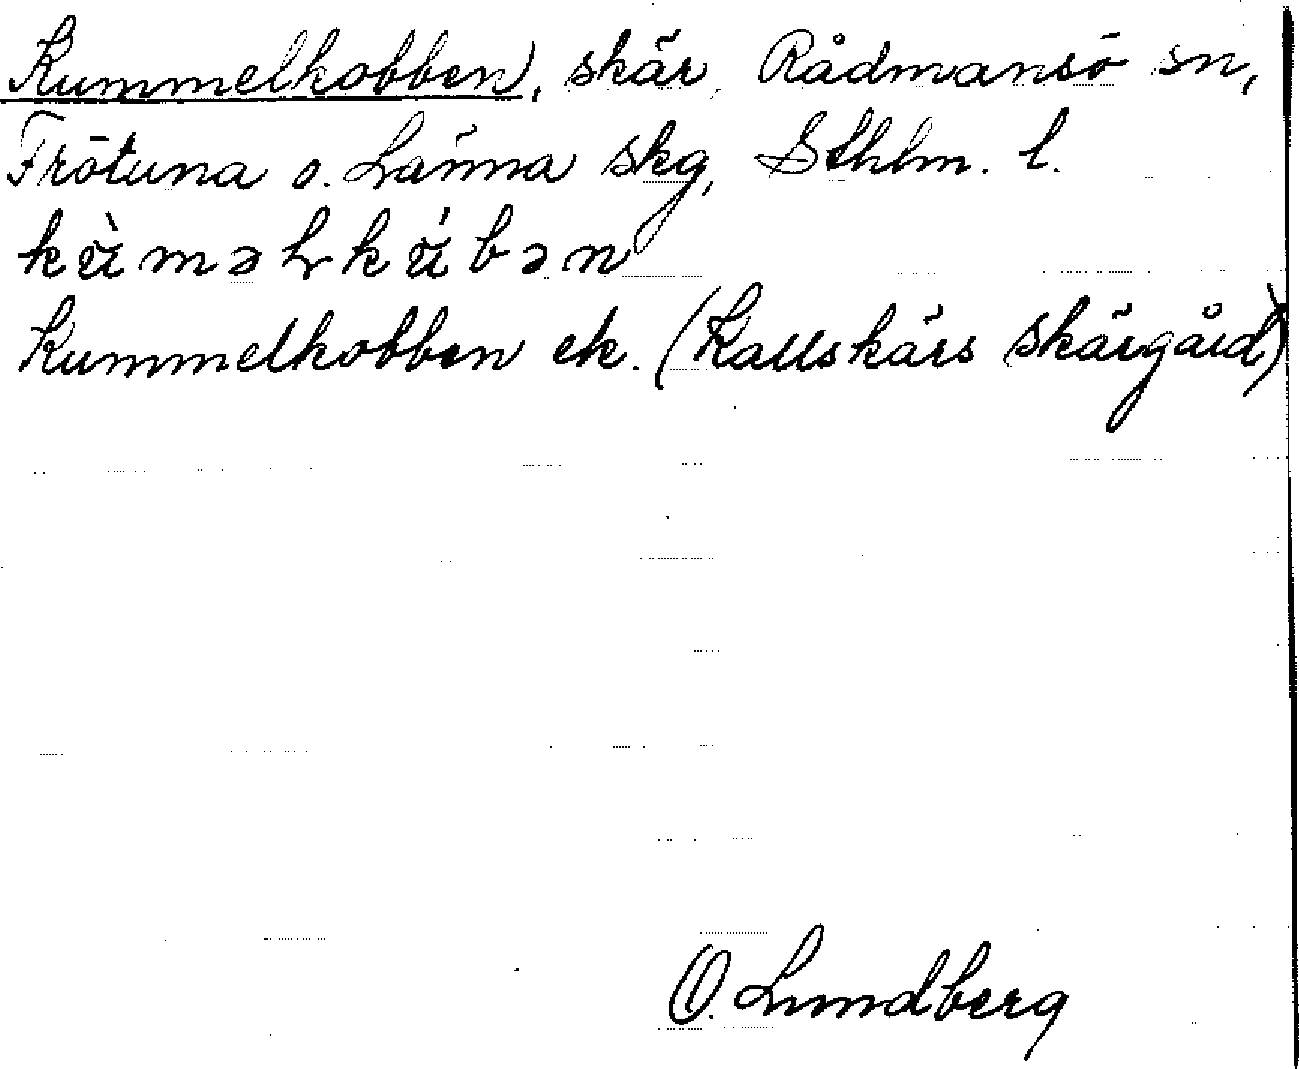 Kummelkobben, skär, Rådmansö sn,
Frötuna o. Länna skg, Sthlm. l.
Kummelkobben ek. (Kallskärs skärgård)
O. Lundberg